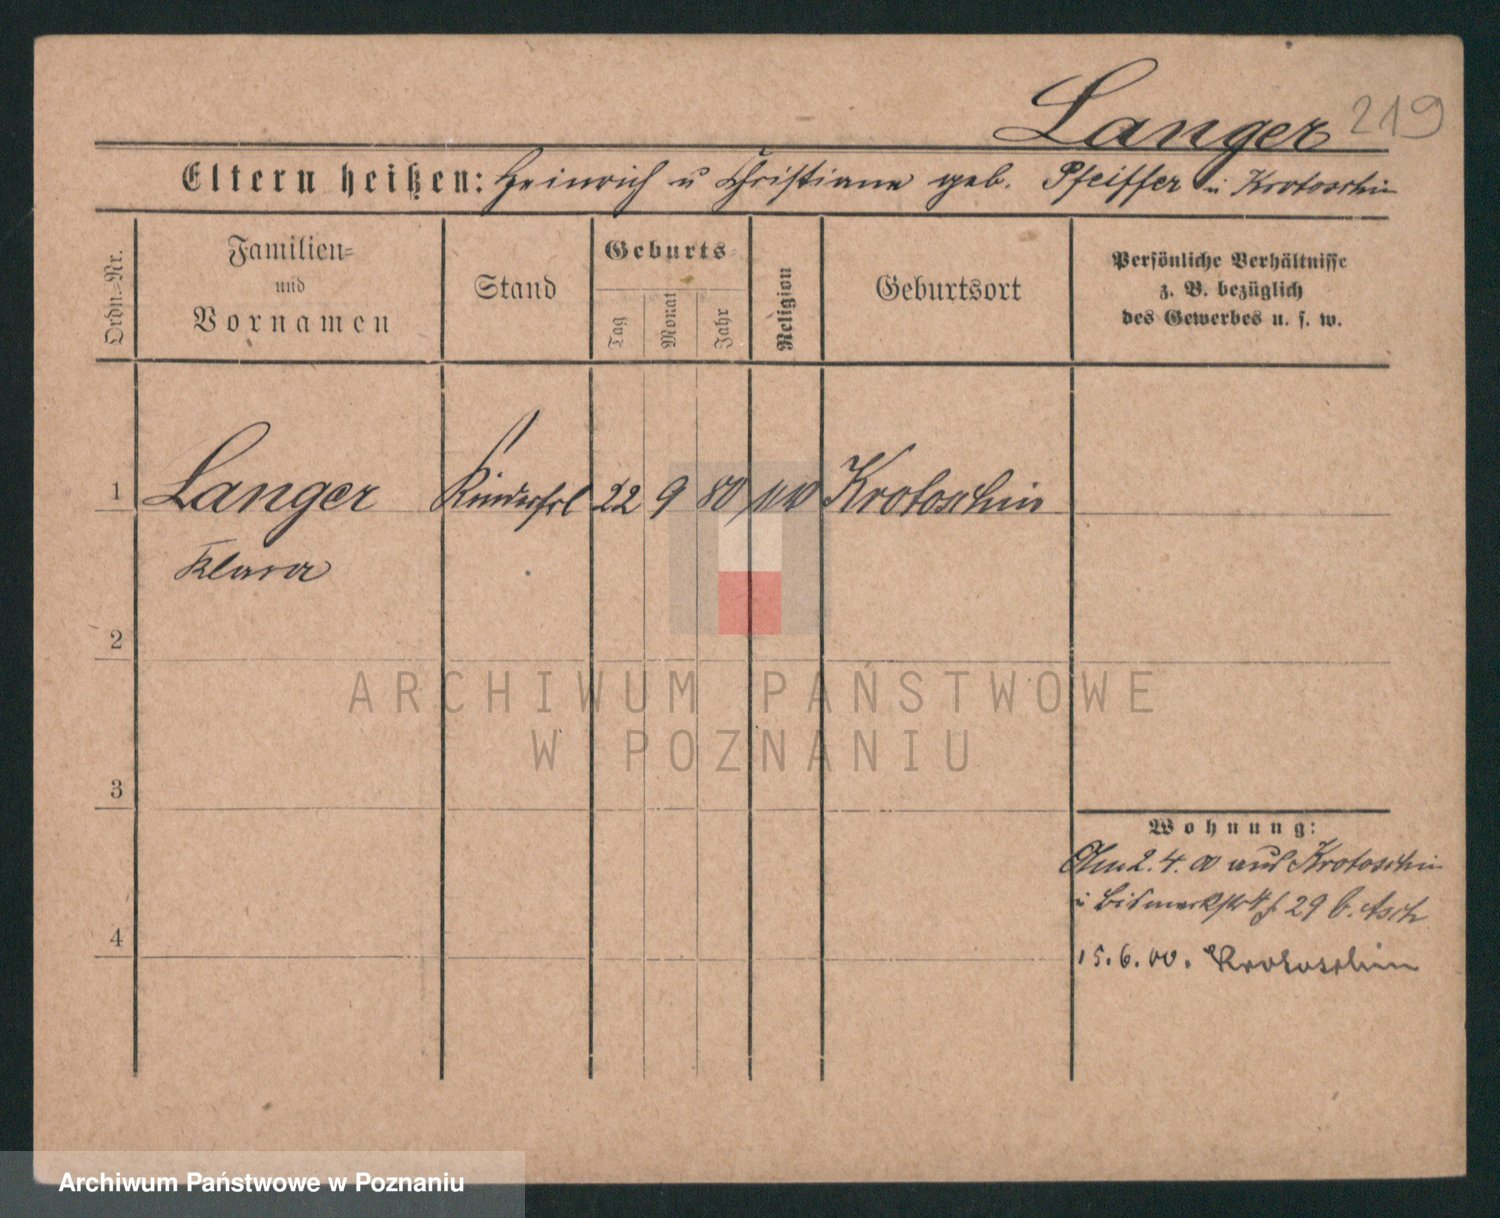 Langer 219
Eltern heißen: Heinrich u Christiane geb. Pfeiffer in Krotoschin
Ordn.-Nr.
Familien-
und
Vornamen
Stand
Geburts-
Tag
Monat
Jahr
Religion
Geburtsort
Persönliche Verhältnisse
z. B. bezüglich
des Gewerbes u. s. w.
1 Langer Kinderfrl 22 9 80 Krotoschin
Klara
2
ARCHIWUM PAŃSTWOWE
W POZNANIU
3
Wohnung:
Am 2. 4. 00 aus Krotoschin
i Bismarckstr 29 b.
4
15. 6. 00. Krotoschin
Archiwum Państwowe w Poznaniu